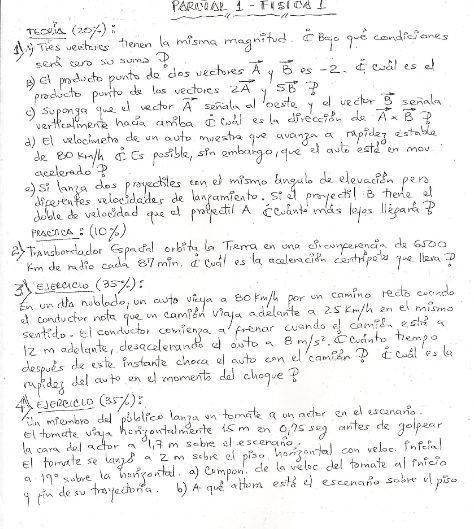 PARCIAL 1 - FISICA 1
TEORÍA (20%):
1) a) Tres vectores tienen la misma magnitud. ¿Bajo qué condiciones
será cero su suma?
B) El producto punto de dos vectores A y B es -2. ¿cuál es el
producto punto de los vectores 2A y 5B?
c) Suponga que el vector A señala al oeste y el vector B señala
verticalmente hacia arriba ¿Cuál es la dirección de A x B?
d) El velocímetro de un auto muestra que avanza a rapidez estable
de 80 km/h ¿Es posible, sin embargo, que el auto esté en mov.
acelerado?
e) Si lanza dos proyectiles con el mismo ángulo de elevación pero
diferentes velocidades de lanzamiento. Si el proyectil B tiene el
doble de velocidad que el proyectil A ¿Cuánto más lejos llegará?
PRACTICA: (10%)
2) Transbordador Espacial orbita la Tierra en una circunferencia de 6500
km de radio cada 87 min. ¿Cuál es la aceleración centrípeta que lleva?
3) EJERCICIO (35%):
En un día nublado, un auto viaja a 80 km/h por un camino recto cuando
el conductor nota que un camión viaja adelante a 25 km/h en el mismo
sentido. El conductor comienza a frenar cuando el camión está a
12 m adelante, desacelerando el auto a 8 m/s². ¿Cuánto tiempo
después de este instante choca el auto con el camión? ¿Cuál es la
rapidez del auto en el momento del choque?
4) EJERCICIO (35%):
Un miembro del público lanza un tomate a un actor en el escenario.
El tomate viaja horizontalmente 15 m en 0,75 seg antes de golpear
la cara del actor a 1,7 m sobre el escenario.
El tomate se lanzó a 2 m sobre el piso horizontal con veloc. inicial
a 19° sobre la horizontal. a) Compon. de la veloc del tomate al inicio
y fin de su trayectoria. b) A qué altura está el escenario sobre el piso